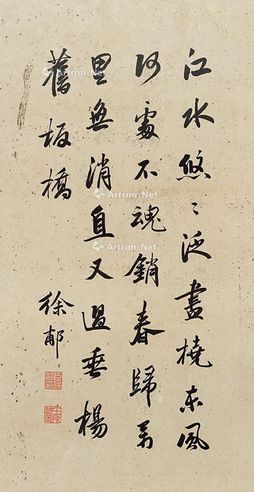 江水悠〻泛畫橈東風
何處不魂銷春歸萬
里無消息又過垂楊
舊板橋
徐郙
Artron.Net
Artron.Net